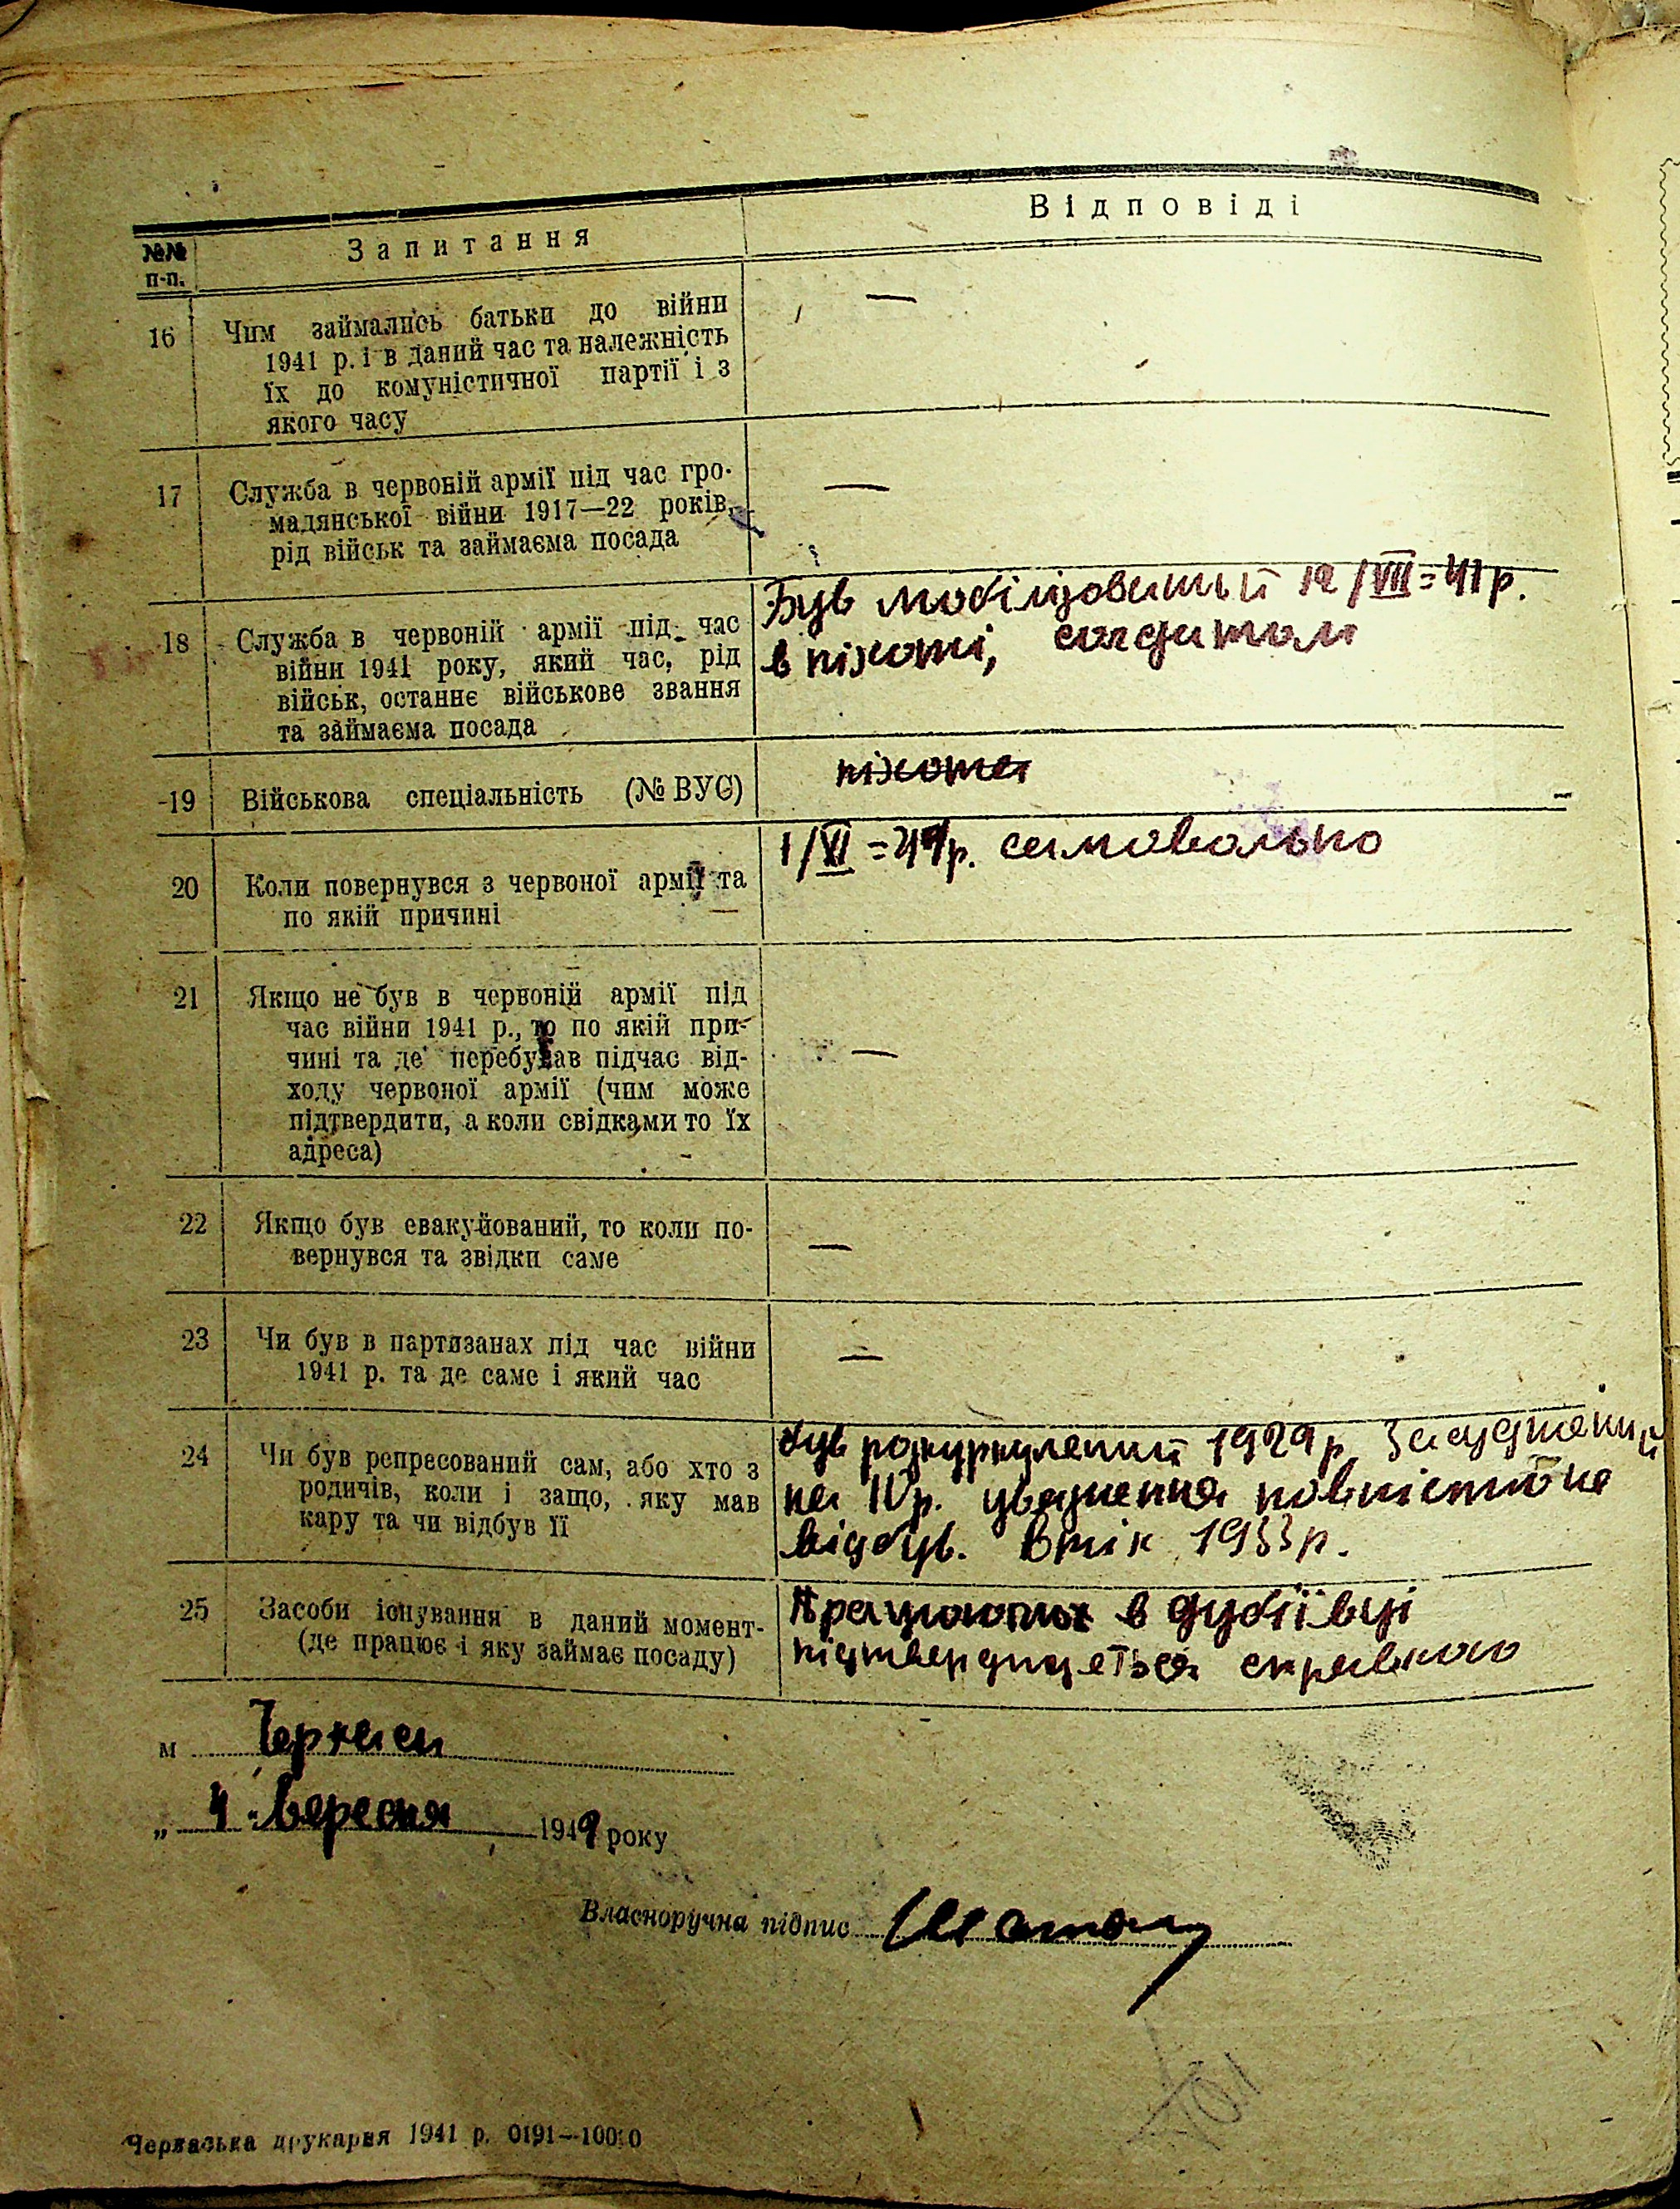 №№ п-п.
Запитання
Відповіді
16
Чим займались батьки до війни
1941 р. і в даний час та належність
їх до комуністичної партії і з
якого часу
—
17
Служба в червоній армії під час гро-
мадянської війни 1917—22 років,
рід військ та займаєма посада
—
18
Служба в червоній армії під час
війни 1941 року, який час, рід
військ, останнє військове звання
та займаєма посада
Був мобілізований 12/VIII=41 р.
в піхоті, солдатом
19
Військова спеціальність (№ ВУС)
піхота
20
Коли повернувся з червоної армії та
по якій причині
1/XI=41р. самовольно
21
Якщо не був в червоній армії під
час війни 1941 р., то по якій при-
чині та де перебував підчас від-
ходу червоної армії (чим може
підтвердити, а коли свідками то їх
адреса)
—
22
Якщо був евакуйований, то коли по-
вернувся та звідки саме
—
23
Чи був в партизанах під час війни
1941 р. та де саме і який час
—
24
Чи був репресований сам, або хто з
родичів, коли і защо, яку мав
кару та чи відбув її
був розкуркулений 1929 р. Засуджений
на IVр. увязнення повністю не
відбув. Втік 1933р.
25
Засоби існування в даний момент
(де працює і яку займає посаду)
Працюють в Дубіївці
підтверджується справкою
м Черкаси
„ 4 " вересня 194 року
Власноручна підпис
Черкаська друкарня 1941 р. 0191—10000